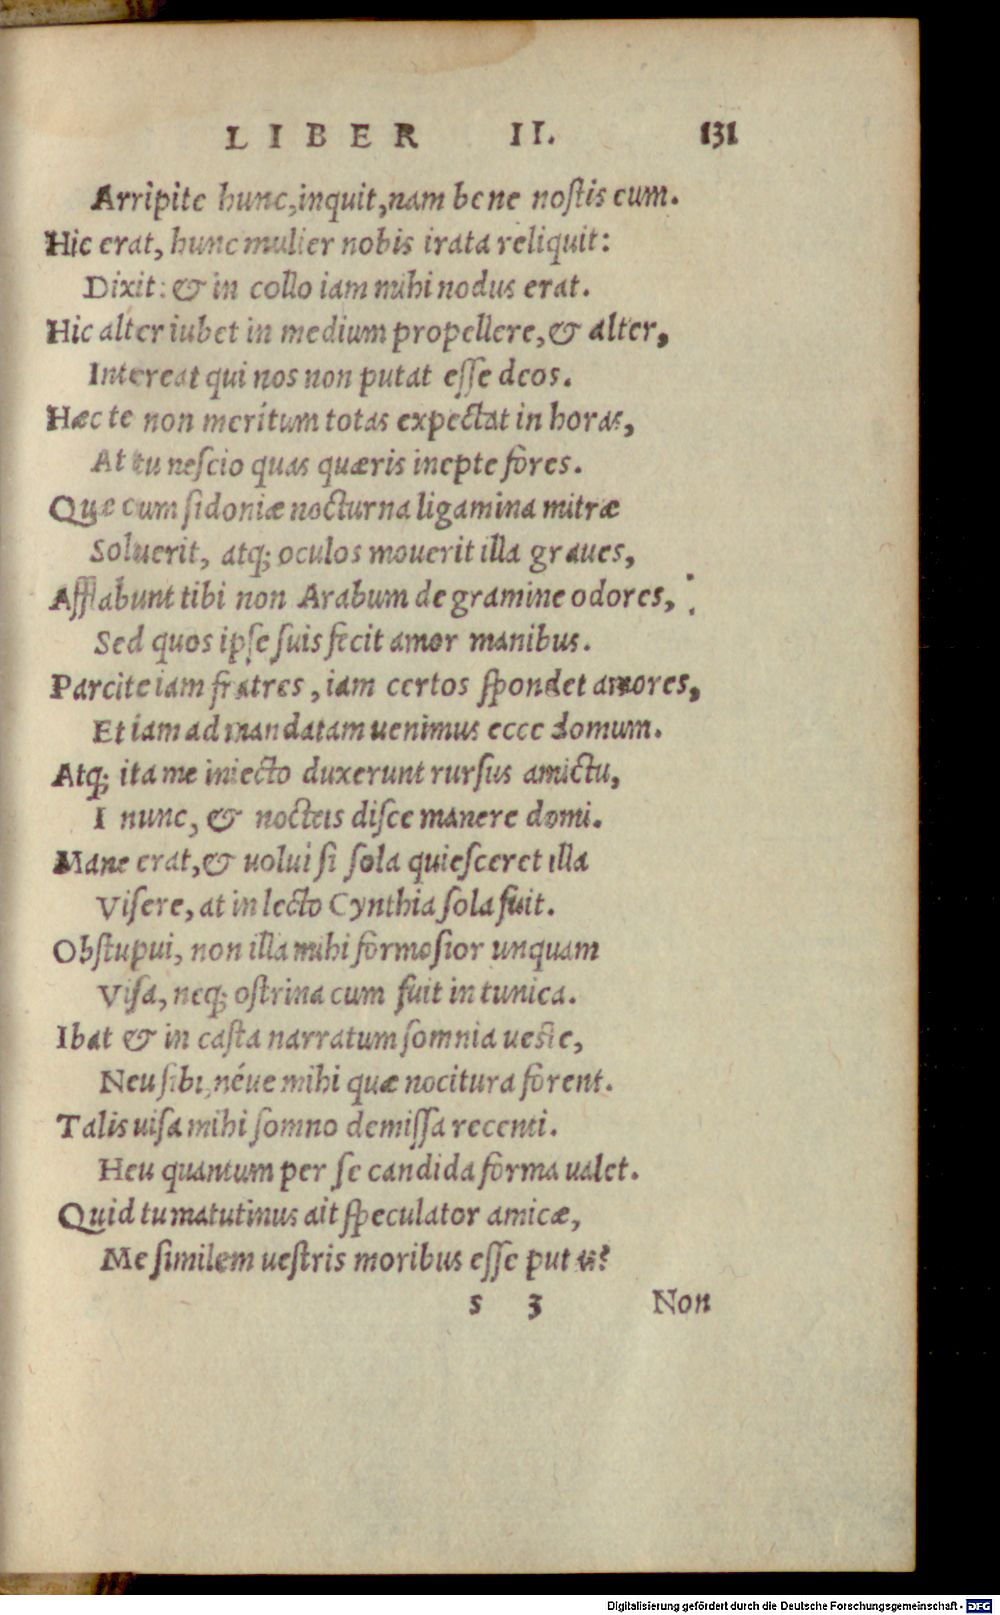 LIBER II. 131
Arripite hunc, inquit, nam bene nostis eum.
Hic erat, hunc mulier nobis irata reliquit:
Dixit: & in collo iam mihi nodus erat.
Hic alter iubet in medium propellere, & alter,
Intereat qui nos non putat esse deos.
Hæc te non meritum totas expectat in horas,
At tu nescio quas quæris inepte fores.
Quæ cum sidoniæ nocturna ligamina mitræ
Soluerit, atq; oculos mouerit illa graues,
Afflabunt tibi non Arabum de gramine odores,
Sed quos ipse suis fecit amor manibus.
Parcite iam fratres, iam certos spondet amores,
Et iam ad mandatam uenimus ecce domum.
Atq; ita me iniecto duxerunt rursus amictu,
I nunc, & nocteis disce manere domi.
Mane erat, & uolui si sola quiesceret illa
Visere, at in lecto Cynthia sola fuit.
Obstupui, non illa mihi formosior unquam
Visa, neq; ostrina cum fuit in tunica.
Ibat & in casta narratum somnia ueste,
Neu sibi, néue mihi quæ nocitura forent.
Talis uisa mihi somno demissa recenti.
Heu quantum per se candida forma ualet.
Quid tu matutinus ait speculator amicæ,
Me similem uestris moribus esse putas?
s 3 Non
Digitalisierung gefördert durch die Deutsche Forschungsgemeinschaft - DFG